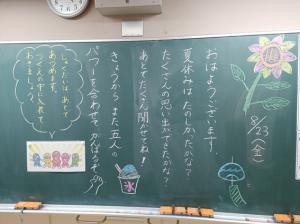 8/23(金)
おはようございます。
夏休みは たのしかったかな?
たくさんの思い出ができたかな?
あとでたくさん聞かせてね!
きょうから また五人の
パワーを合わせて がんばるぞ
しゅくだいは、あとで
あつめます。
つくえの中に入れて
氷